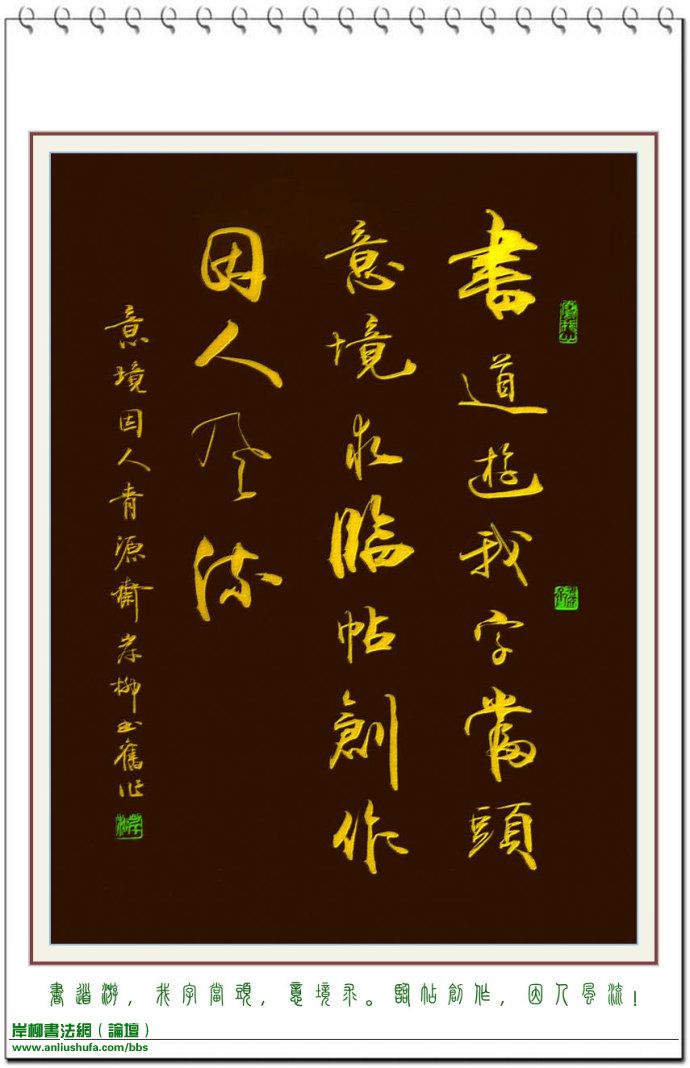 書道遊我字當頭
意境求臨帖創作
因人風流
意境因人青源齋岸柳書舊作
書道游，我字當頭，意境求。臨帖創作，因人風流！
岸柳書法網（論壇）
www.anliushufa.com/bbs